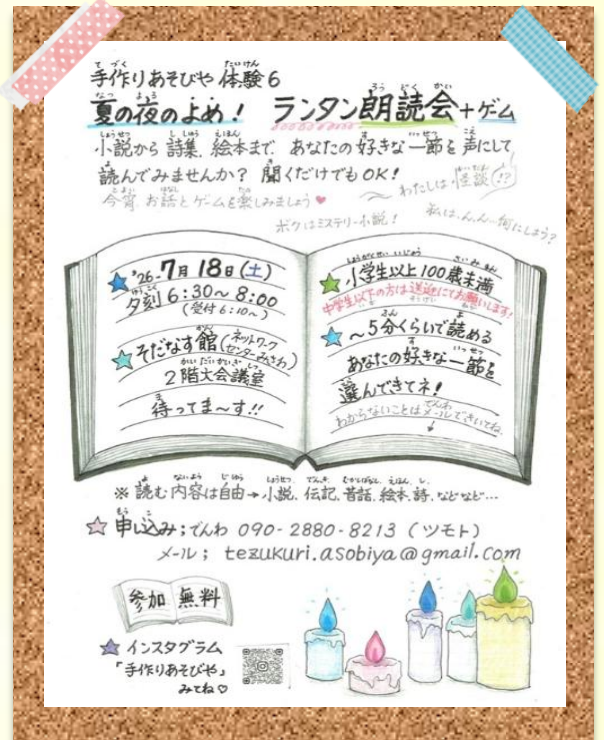 手作りあそびや 体験6
夏の夜のよめ! ランタン朗読会+ゲーム
小説から 詩集、絵本まで あなたの好きな 一節を 声にして
読んでみませんか? 聞くだけでもOK!
わたしは、怪談(!?)
今宵 お話とゲームを楽しみましょう♥
ボクはミステリー小説!
私は、んん〜何にしよう?
★'26・7月18日(土)
夕刻6:30〜8:00
(受付6:10〜)
★そだなす館(ネットワークセンターみさわ)
2階大会議室
待ってま〜す!!
★小学生以上100歳未満
中学生以下の方は送迎にてお願いします!
★〜5分くらいで読める
あなたの好きな一節を
選んできてネ!
わからないことはメールできいてね。
↓
※ 読む内容は自由→小説、伝記、昔話、絵本、詩、などなど…
☆申し込み;でんわ 090-2880-8213 (ツモト)
メール; tezukuri.asobiya@gmail.com
参加 無料
★インスタグラム
「手作りあそびや」
みてね♡